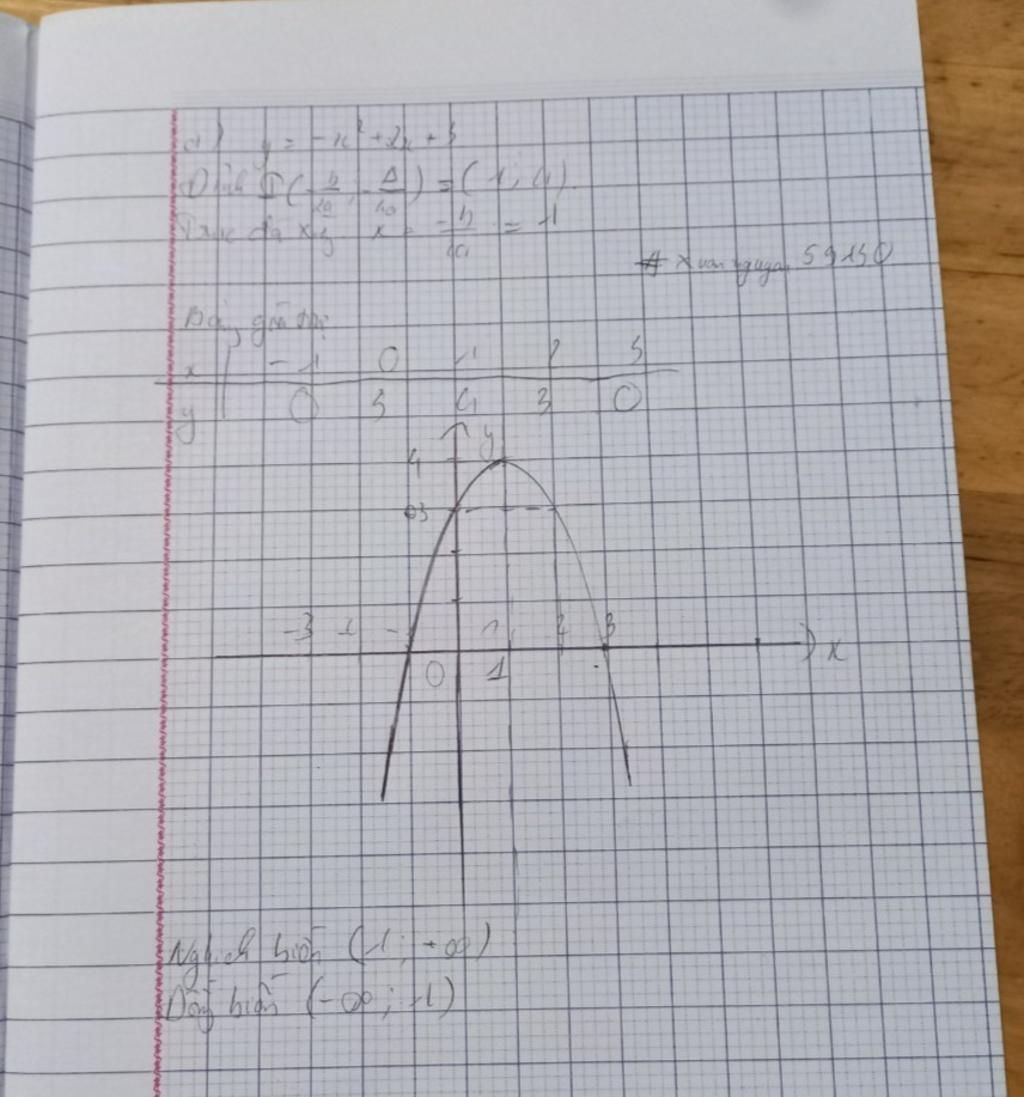 a) y = -x² + 2x + 3
Đỉnh I(-b/2a; -Δ/4a) = (1; 4)
Trục đx x = -b/2a = 1
# Xuan nguyen 59150
Bảng giá trị
x | -1 0 1 2 3
y | 0 3 4 3 0
y
4
3
-3 -1 1 2 3
0 1 x
Nghịch biến (1; +∞)
Đồng biến (-∞; 1)